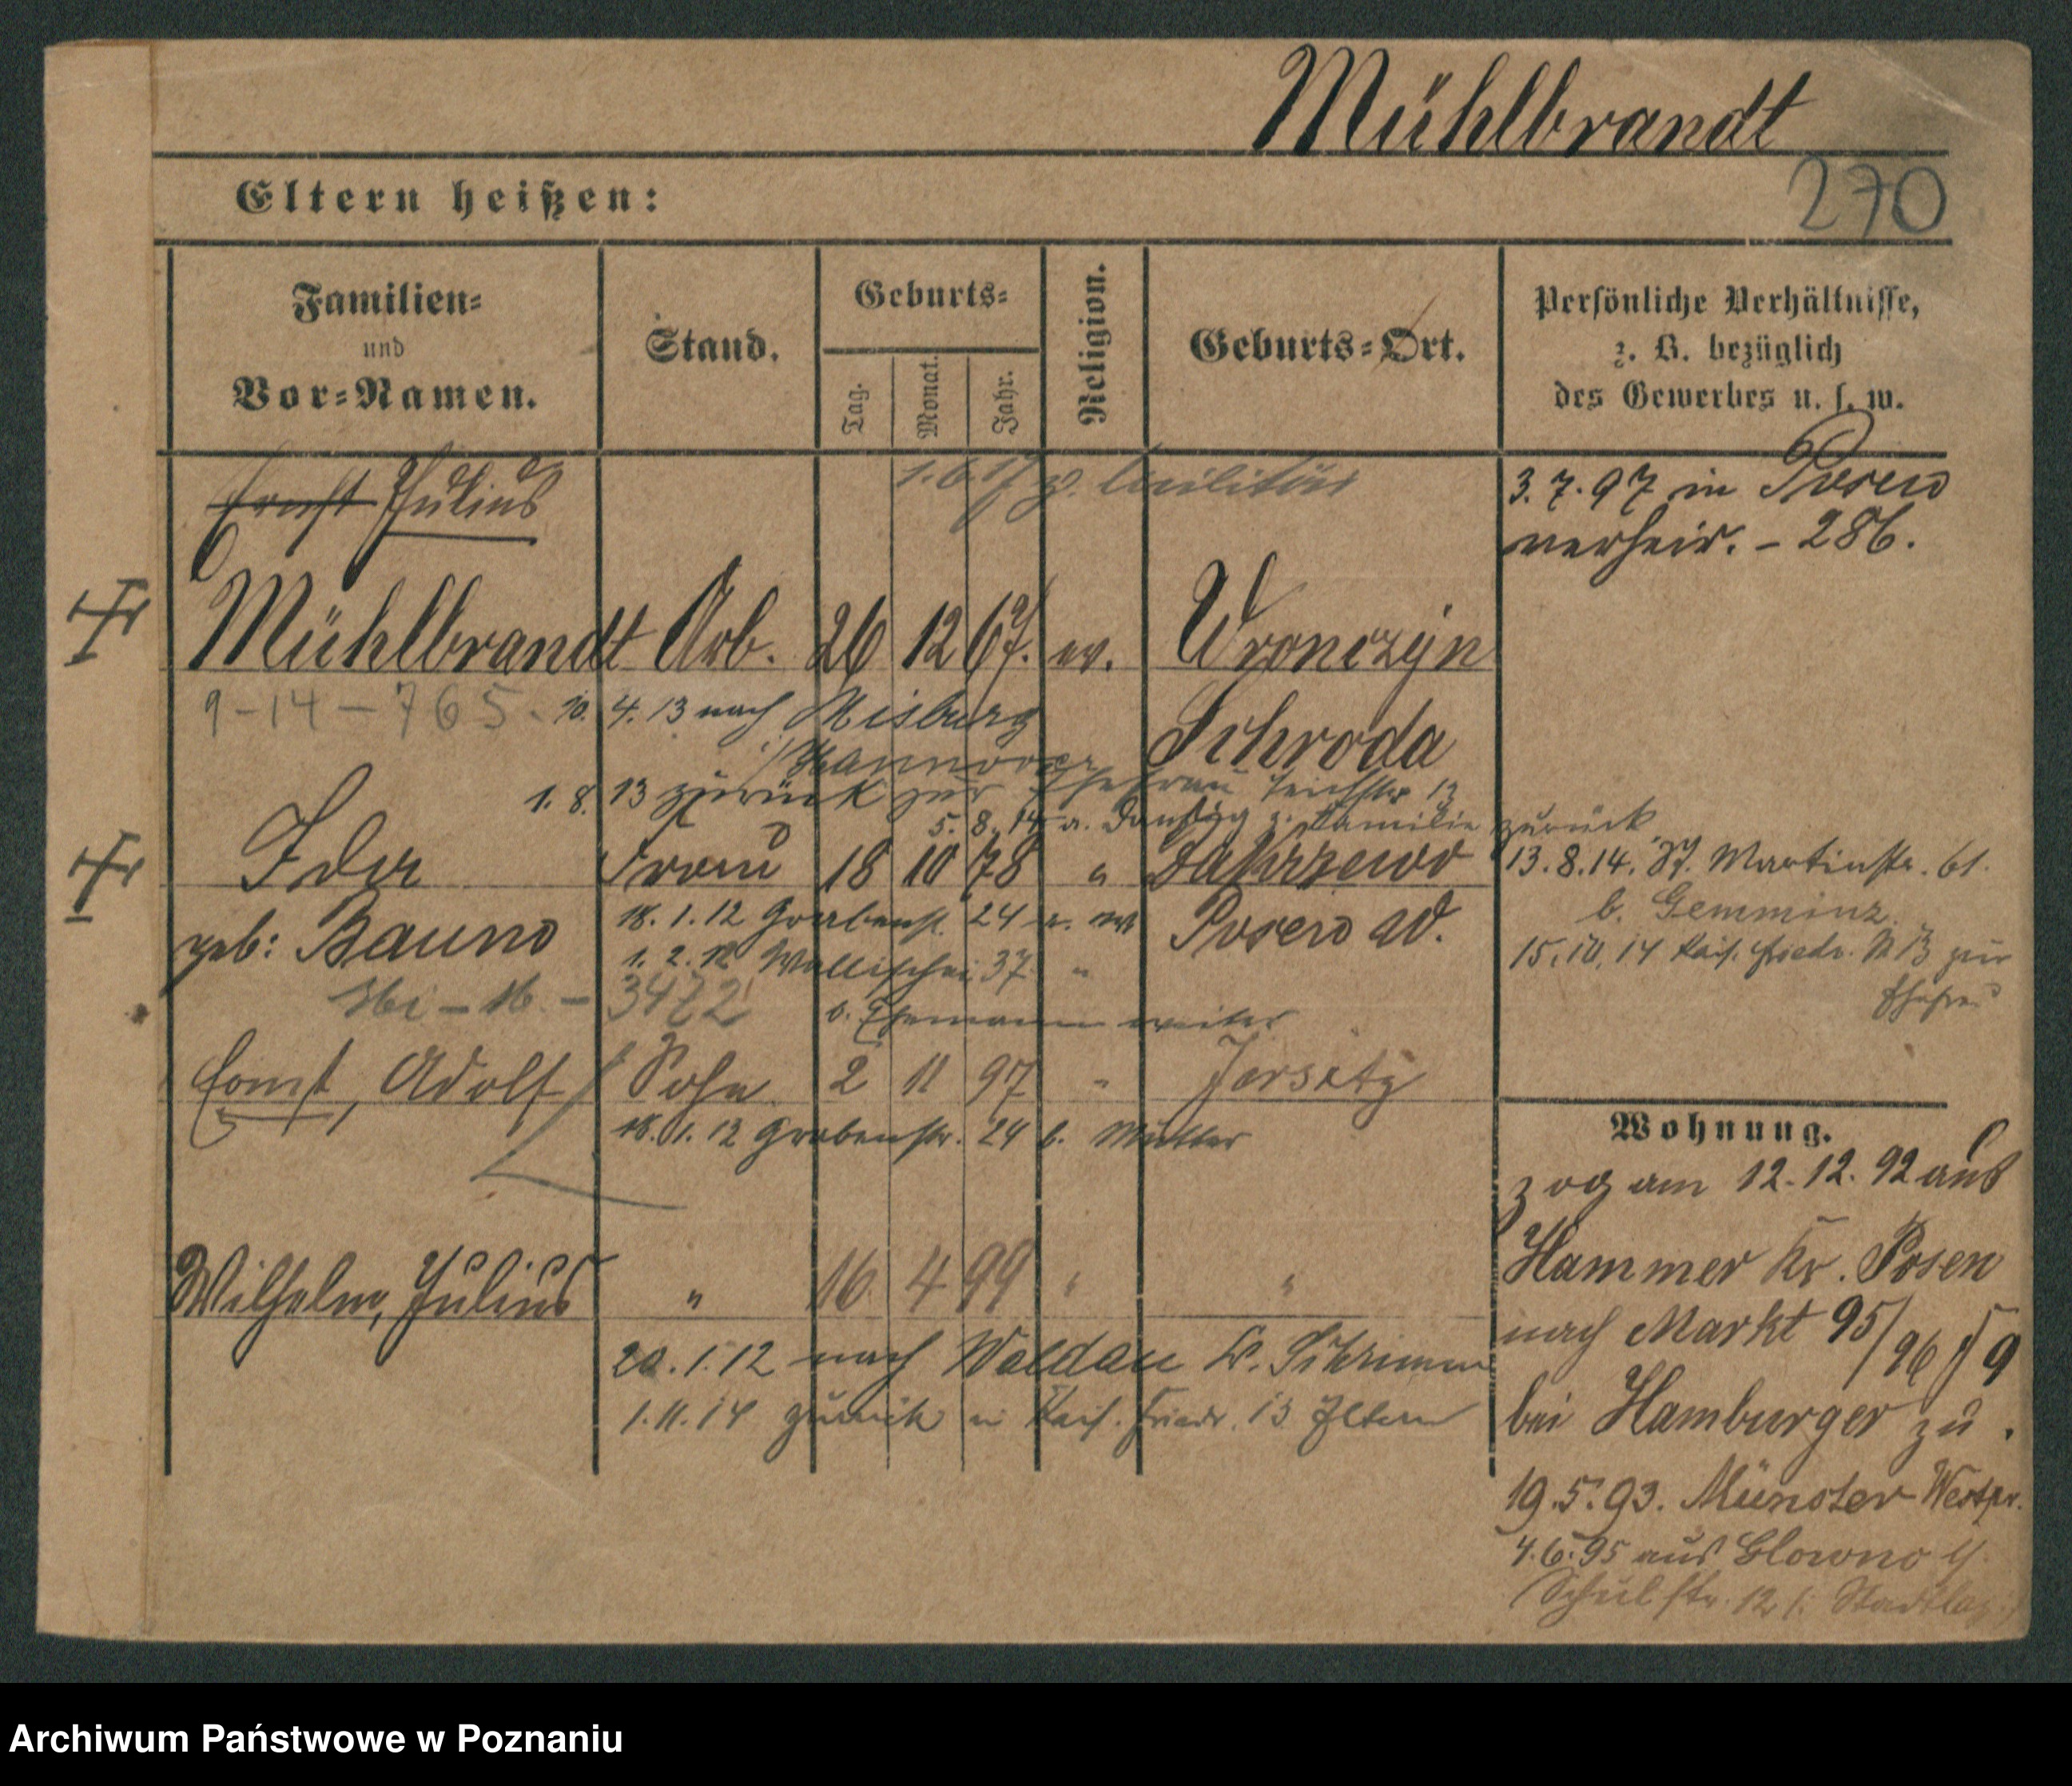 Mühlbrandt
270
Eltern heißen:
Familien-
und
Vor-Namen.
Stand.
Geburts-
Tag.
Monat.
Jahr.
Religion.
Geburts-Ort.
Persönliche Verhältnisse,
z. B. bezüglich
des Gewerbes u. s. w.
Ernst Julius
z. Militär
3. 7. 97 in Posen
verheir. - 286.
Mühlbrandt Arb. 26 12 67. ev. Wronczyn
9-14-765. 10. 4. 13 nach Misburg
Schroda
Hannover
1. 8. 13 zurück zur Ehefrau
5. 8. 14 a. Danzig z. Familie zurück
Ida Frau 18 10 78 " Zakrzewo
13. 8. 14. St. Martinstr. 61.
b. Gemminz.
geb: Bauno
18. 1. 12 Grabenstr. 24
Posen
1. 2. 12 Wallischei 37 "
15. 10. 14 Kais. Friedr. 13 zur
Ehefrau
3472
b. Ehemann weiter
Ernst, Adolf Sohn 2 11 97 " Jersitz
18. 1. 12 Grabenstr. 24 b. Mutter
Wohnung.
zog am 12. 12. 92 aus
Hammer Kr. Posen
nach Markt 95/96
bei Hamburger zu.
Wilhelm, Julius " 16 4 99 " "
20. 1. 12 nach Waldau Kr. Schrimm
1. 11. 14 zurück Kais. Friedr. 13 Eltern
19. 5. 93. Münster Westpr.
4. 6. 95 aus Glowno
Schulstr. 12 Stadtlaz.
Archiwum Państwowe w Poznaniu